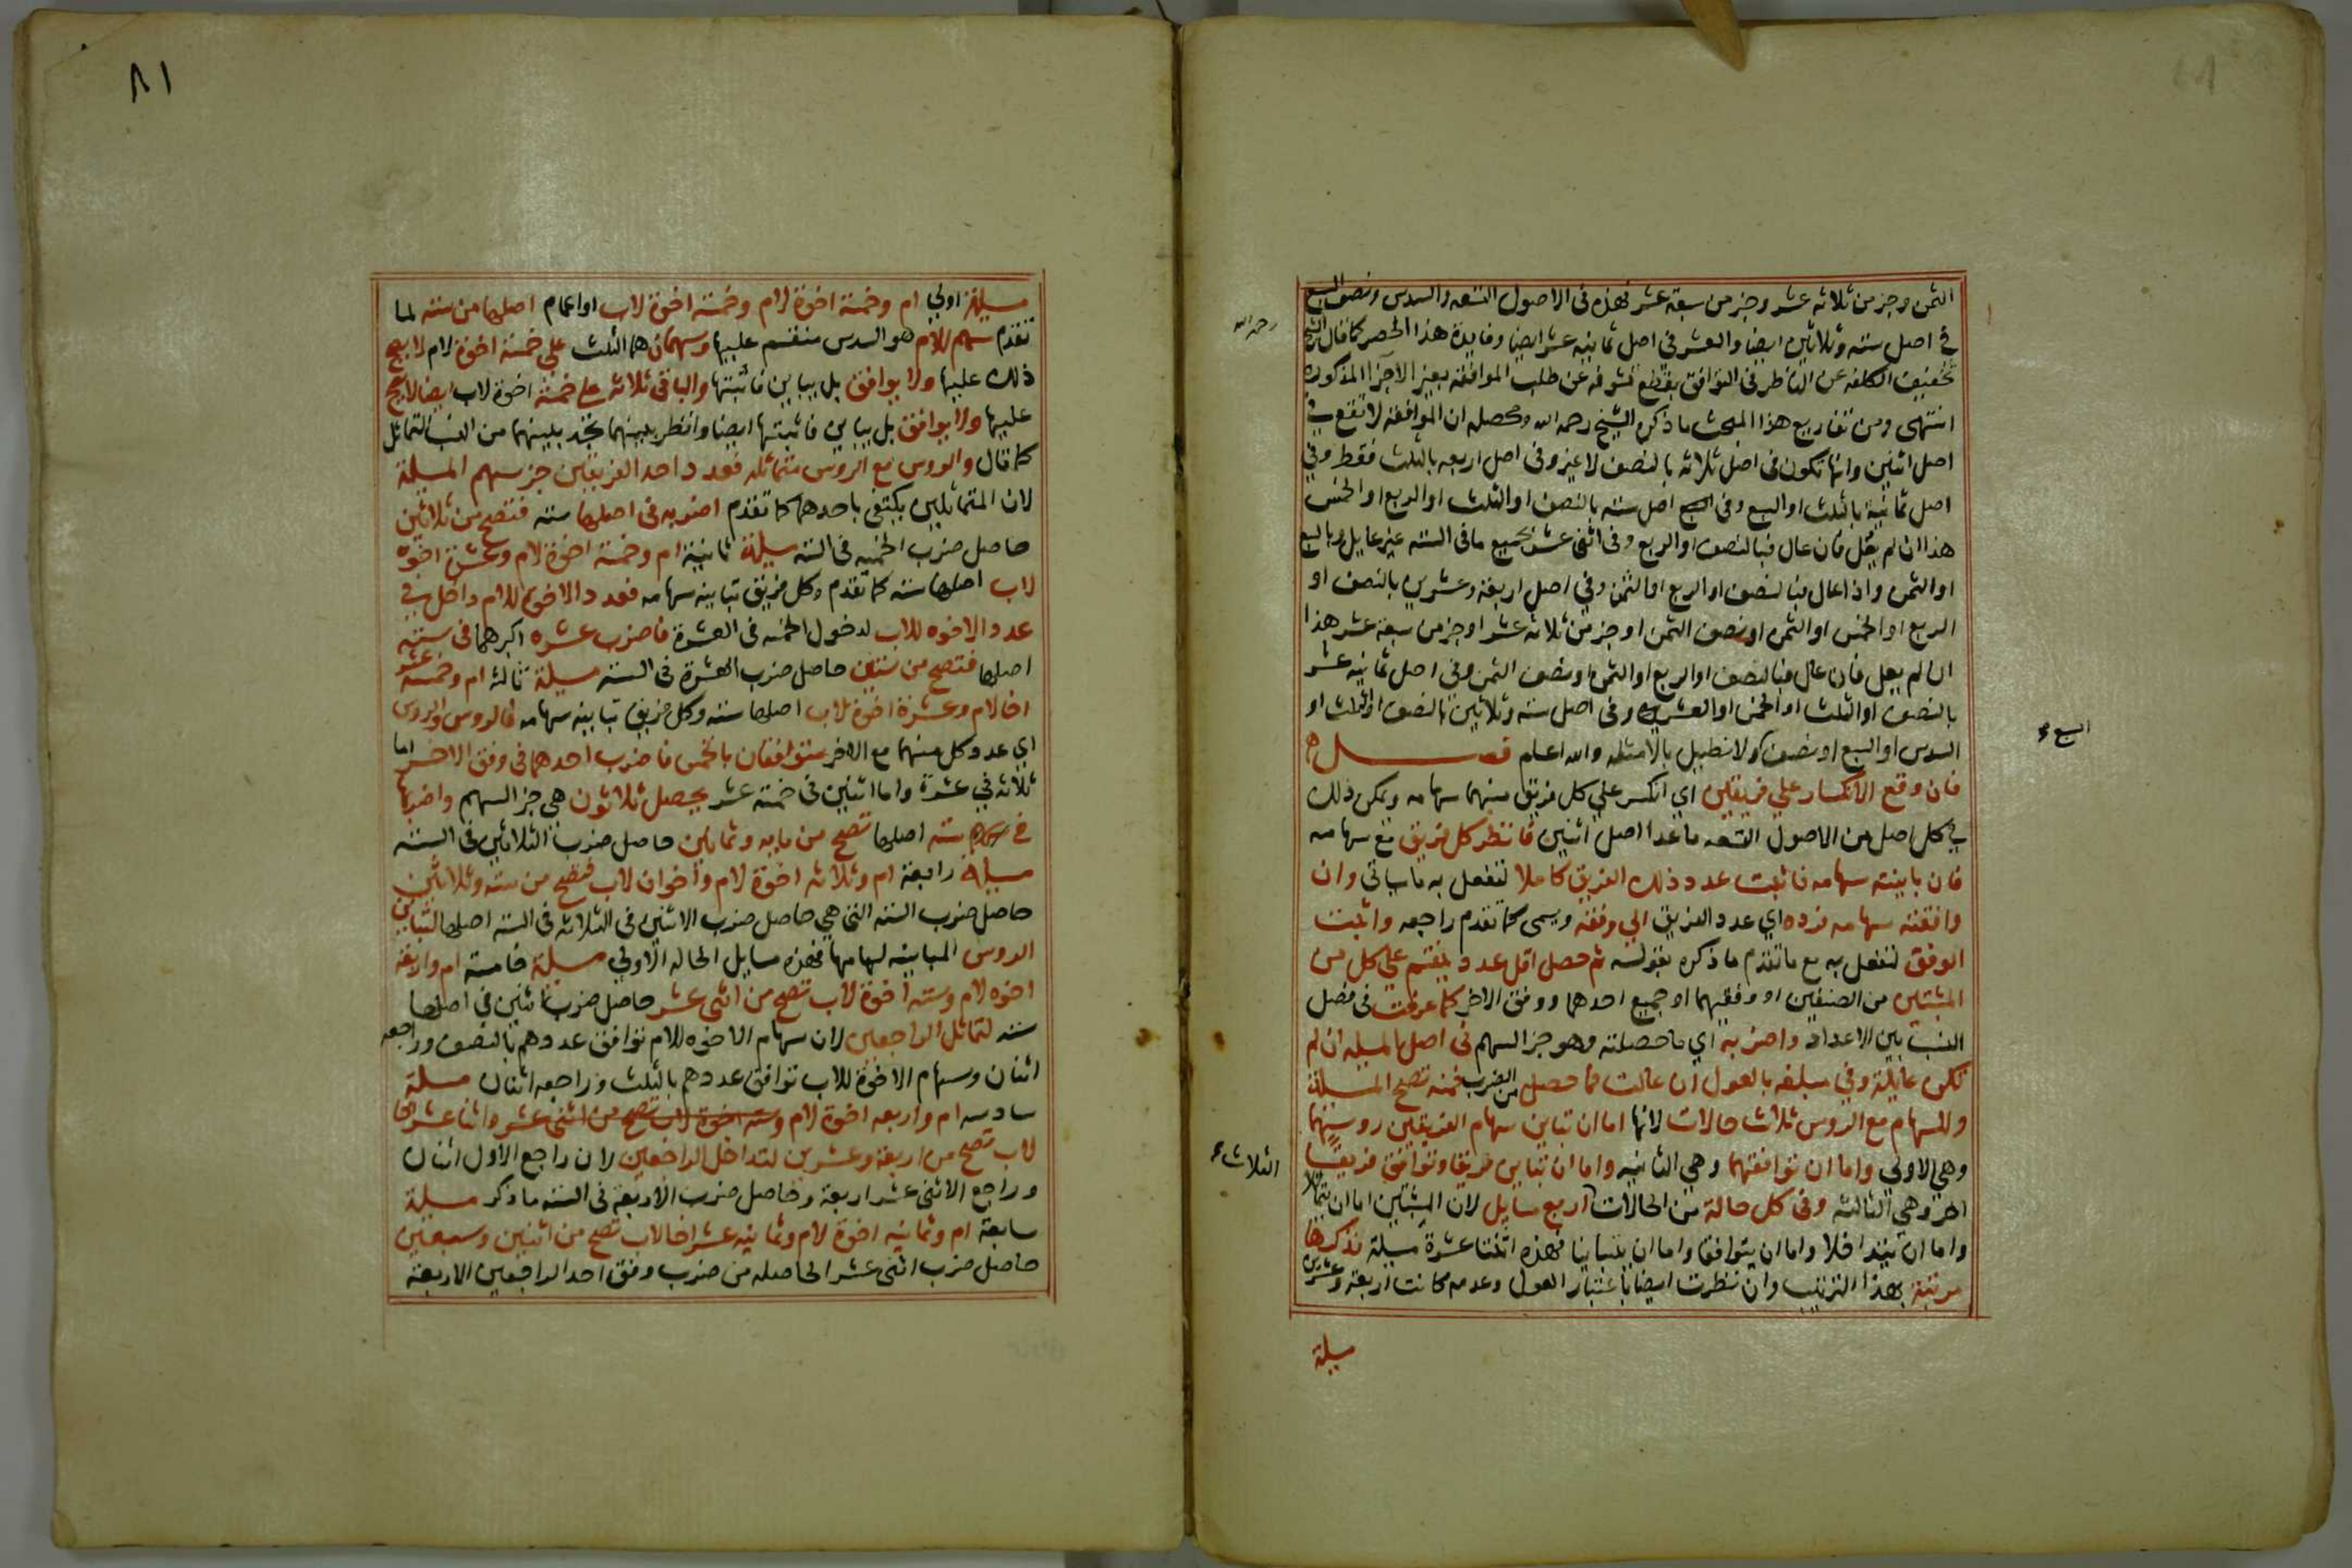 الثمن وجز من ثلاثه عشر وجز من سبعة عشر فهذه فى الاصول التسعه والسدس ونصف السبع
في اصل سته وثلاثين ايضا والعشر فى اصل ثمانيه عشر ايضا وفايدة هذا الحصر كما قال الشيخ
رحمه الله
تخفيف الكلفه عن الناظر فى التوافق بقطع تشوفه عن طلب الموافقه بغير الاجزا المذكوره
انتهى ومن تفاريع هذا المبحث ما ذكره الشيخ رحمه الله ومحصله ان الموافقه لا تقع في
اصل اثنين وانها تكون فى اصل ثلاثه بالنصف لا غير وفى اصل اربعه بالثلث فقط وفي
اصل ثمانية بالثلث او السبع وفى اصل سته بالنصف او الثلث او الربع او الخمس
هذا ان لم يعل فان عال فبالنصف او الربع وفى اثنى عشر بجميع ما فى السته غير عايل وبالسبع
او الثمن واذا عال فبالنصف او الربع او الثمن وفي اصل اربعة وعشرين بالنصف او
الربع او الخمس او الثمن او نصف الثمن او جز من ثلاثه عشر او جز من سبعة عشر هذا
ان لم يعل فان عال فبالنصف او الربع او الثمن او نصف الثمن وفى اصل ثمانيه عشر
بالنصف او الثلث او الخمس او العشر وفى اصل سته وثلاثين بالنصف او الثلث او
السدس او السبع او نصف ولا نطيل بالامثله والله اعلم فصل
السبع
فان وقع الانكسار علي فريقين اي انكسر علي كل فريق منهما سهامه ويمكن ذلك
في كل اصل من الاصول التسعه ما عدا اصل اثنين فانظر كل فريق مع سهامه
فان باينته سهامه فاثبت عدد ذلك الفريق كاملا لتفعل به ما ياتي وان
وافقته سهامه فرده اي عدد الفريق الي وفقه ويسمى كما تقدم راجعه واثبت
الوفق لتفعل به مع ما تقدم ما ذكره بقوله ثم حصل اقل عدد ينقسم علي كل من
المثبتين من الصنفين او وفقيهما او جميع احدهما ووفق الاخر كما عرفت فى فصل
النسب بين الاعداد واضربه اي ما حصلته وهو جز السهم فى اصل المسيله ان لم
تكن عايلة وفي مبلغه بالعول ان عالت فما حصل من الضرب فمنه تصح المسيلة
وللسهام مع الروس ثلاث حالات لانها اما ان تباين سهام الفريقين روسهما
وهي الاولي واما ان توافقهما وهي الثانيه واما ان تباين فريقا وتوافق فريقا
اخر وهي الثالثه وفى كل حالة من الحالات اربع مسايل لان المثبتين اما ان يتماثلا
الثلاث
واما ان يتداخلا واما ان يتوافقا واما ان يتباينا فهذه اثنتا عشرة مسيلة نذكرها
مرتبة بهذا الترتيب وان نظرت ايضا باعتبار العول وعدمه كانت اربعة وعشرين
مسيلة
٨١
مسيلة اولي ام وخمسة اخوة لام وخمسة اخوة لاب او اعمام اصلها من سته لما
تقدم سهم للام هو السدس منقسم عليها وسهمان هما الثلث علي خمسة اخوة لام لا يصح
ذلك عليها ولا يوافق بل يباين فاثبتها والباقى ثلاثه على خمسة اخوة لاب ايضا لا يصح
عليها ولا يوافق بل يباين فاثبتها ايضا وانظر بينهما تجد بينهما من النسب التماثل
كما قال والروس مع الروس متماثله فعدد احد الفريقين جز سهم المسيلة
لان المتماثلين يكتفى باحدهما كما تقدم اضربه فى اصلها سته فتصح من ثلاثين
حاصل ضرب الخمسه فى السته مسيلة ثانية ام وخمسة اخوة لام وعشرة اخوه
لاب اصلها سته كما تقدم وكل فريق تباينه سهامه فعدد الاخوة للام داخل في
عدد الاخوه للاب لدخول الخمسه فى العشرة فاضرب عشره اكبرهما فى سته
اصلها فتصح من ستين حاصل ضرب العشرة فى السته مسيلة ثالثة ام وخمسة عشر
اخا لام وعشرة اخوة لاب اصلها سته وكل فريق تباينه سهامه فالروس والروس
اي عدد كل منهما مع الاخر متوافقان بالخمس فاضرب احدهما فى وفق الاخر اما
ثلاثه في عشرة واما اثنين فى خمسة عشر يحصل ثلاثون هي جز السهم واضربها
في سته اصلها تصح من مايه وثمانين حاصل ضرب الثلاثين فى السته
مسيلة رابعة ام وثلاثه اخوة لام واخوان لاب فتصح من سته وثلاثين
حاصل ضرب السته التى هي حاصل ضرب الاثنين فى الثلاثه فى السته اصلها لتباين
الروس المباينه لسهامها فهذه مسايل الحاله الاولي مسيلة خامسة ام واربعة
اخوه لام وسته اخوة لاب تصح من اثنى عشر حاصل ضرب اثنين في اصلها
سته لتماثل الراجعين لان سهام الاخوه للام توافق عددهم بالنصف وراجعه
اثنان وسهام الاخوة للاب توافق عددهم بالثلث وراجعه اثنان مسيلة
سادسه ام واربعه اخوة لام وسته اخوة لاب تصح من اثنى عشر واثنا عشر اخا
لاب تصح من اربعة وعشرين لتداخل الراجعين لان راجع الاول اثنان
وراجع الاثنى عشر اربعة وحاصل ضرب الاربعة فى السته ما ذكر مسيلة
سابعة ام وثمانيه اخوة لام وثمانيه عشر اخا لاب تصح من اثنين وسبعين
حاصل ضرب اثنى عشر الحاصله من ضرب وفق احد الراجعين الاربعة